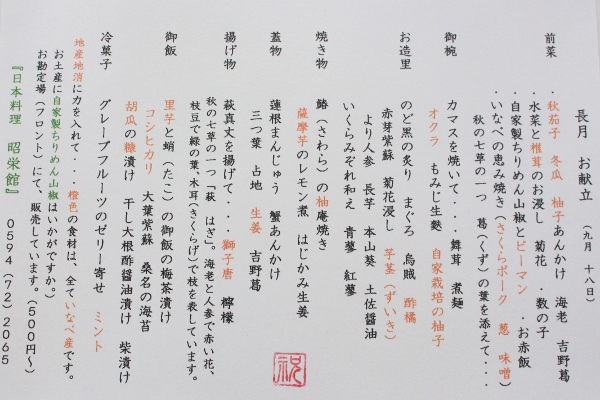 長月 お献立 (九月 十八日)
前菜
・秋茄子 冬瓜 柚子あんかけ 海老 吉野葛
・水菜と椎茸のお浸し 菊花 ・数の子
・自家製ちりめん山椒とピーマン ・お赤飯
・いなべの恵み焼き(さくらポーク 葱 味噌)
秋の七草の一つ 葛(くず)の葉を添えて・・・
御椀
カマスを焼いて・・・ 舞茸 煮麺
オクラ もみじ生麩 自家栽培の柚子
お造里
のど黒の炙り まぐろ 烏賊 酢橘
赤芽紫蘇 菊花浸し 芋茎(ずいき)
より人参 長芋 本山葵 土佐醤油
いくらみぞれ和え 青蓼 紅蓼
焼き物
鰆(さわら)の柚庵焼き
薩摩芋のレモン煮 はじかみ生姜
蓋物
蓮根まんじゅう 蟹あんかけ
三つ葉 占地 生姜 吉野葛
揚げ物
萩真丈を揚げて・・・・ 獅子唐 檸檬
秋の七草の一つ「萩 はぎ」。海老と人参で赤い花、
枝豆で緑の葉、木耳(きくらげ)で枝を表しています。
御飯
里芋と蛸(たこ)の御飯の梅茶漬け
コシヒカリ 大葉紫蘇 桑名の海苔
胡瓜の糠漬け 干し大根酢醤油漬け 柴漬け
冷菓子
グレープフルーツのゼリー寄せ ミント
地産地消に力を入れて・・・橙色の食材は、全ていなべ産です。
お土産に自家製ちりめん山椒はいかがですか。
お勘定場(フロント)にて、販売しています。(500円〜)
『日本料理 昭栄館』 0594(72)2065
祝